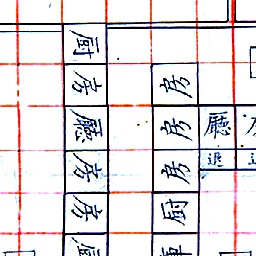 厨
房
廳
房
房
房
房
房
厨
廳
退